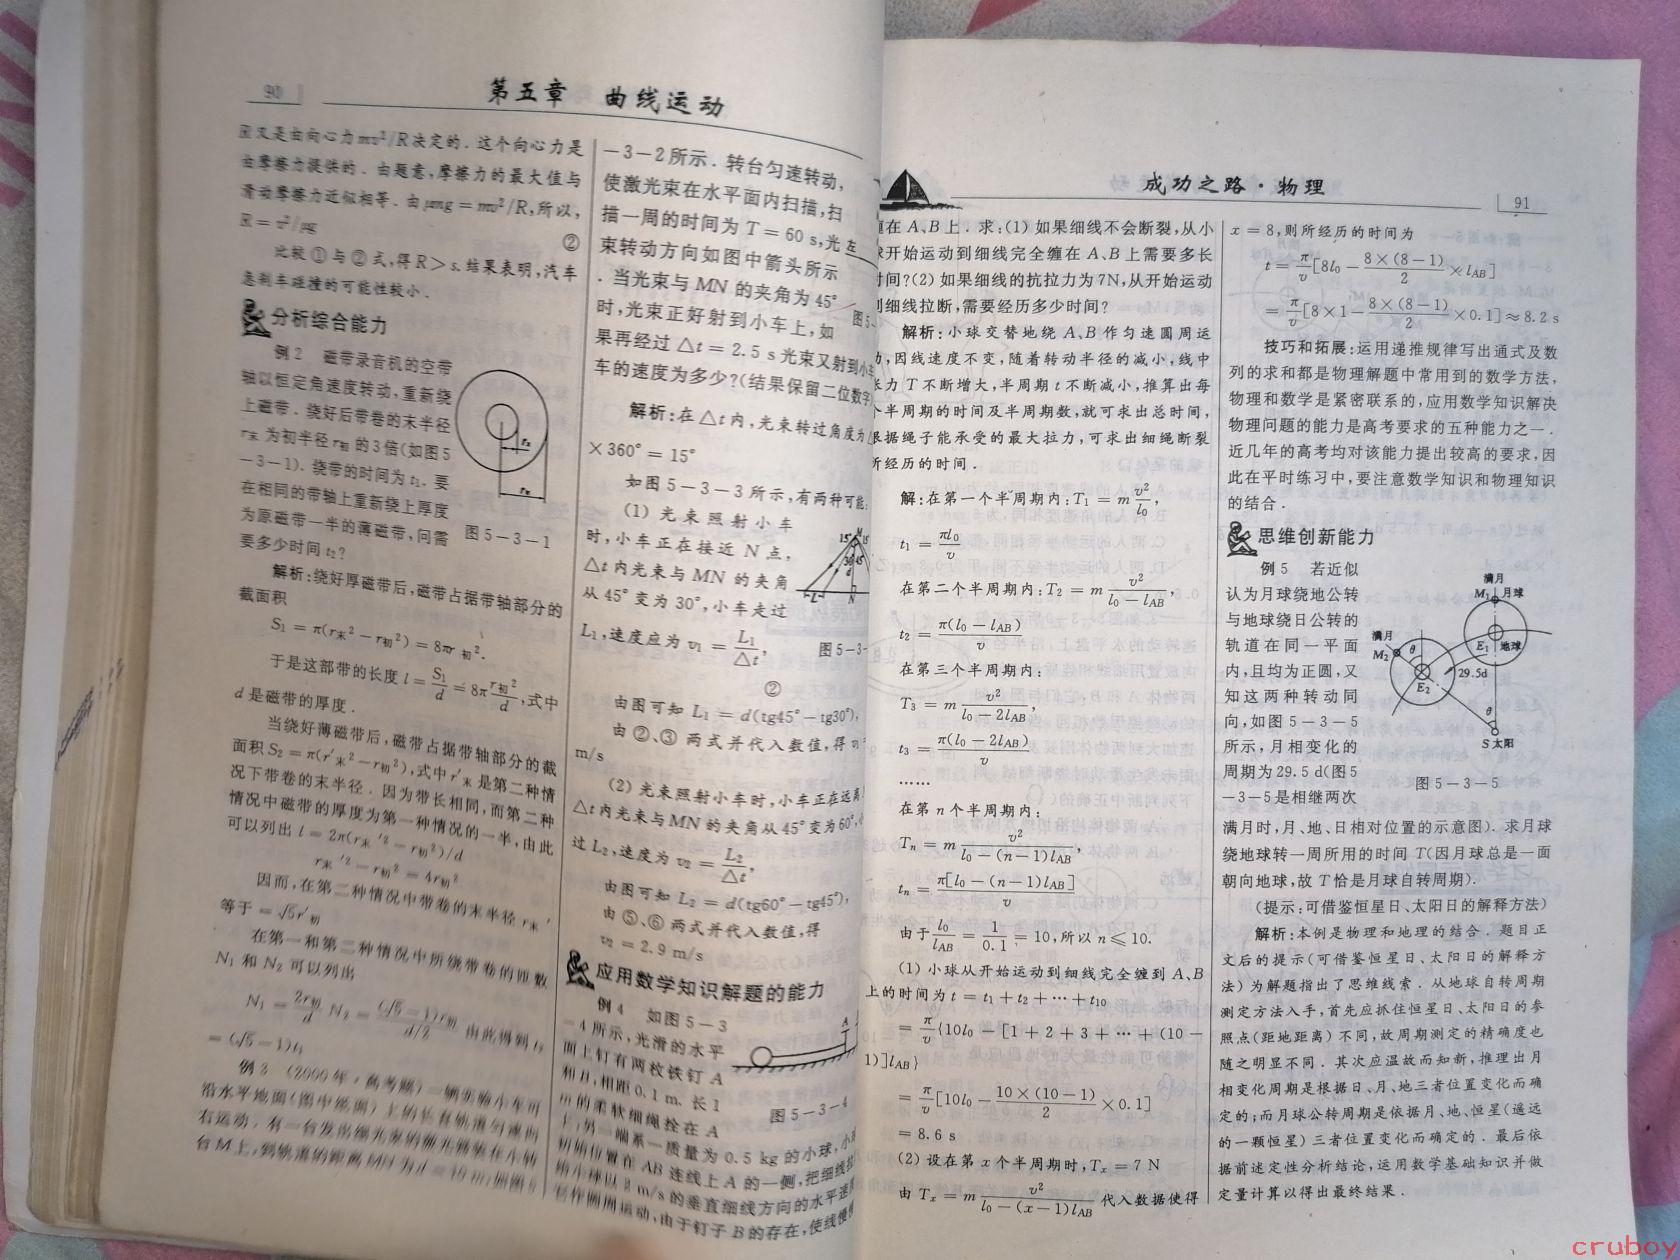 90
第五章 曲线运动
又是由向心力mv²/R决定的．这个向心力是
由摩擦力提供的．由题意,摩擦力的最大值与
滑动摩擦力近似相等．由μmg＝mv²/R,所以,
R＝v²/μg
②
比较①与②式,得R＞s.结果表明,汽车
急刹车碰撞的可能性较小．
分析综合能力
例2 磁带录音机的空带
轴以恒定角速度转动,重新绕
上磁带．绕好后带卷的末半径
r末为初半径r初的3倍(如图5
－3－1)．绕带的时间为t₁．要
在相同的带轴上重新绕上厚度
为原磁带一半的薄磁带,问需
要多少时间t₂?
图5－3－1
解析:绕好厚磁带后,磁带占据带轴部分的
截面积
S₁＝π(r末²－r初²)＝8πr初².
于是这部带的长度l＝S₁/d＝8πr初²/d,式中
d是磁带的厚度．
当绕好薄磁带后,磁带占据带轴部分的截
面积S₂＝π(r′末²－r初²),式中r′末是第二种情
况下带卷的末半径．因为带长相同,而第二种
情况中磁带的厚度为第一种情况的一半,由此
可以列出l＝2π(r末′²－r初²)/d
r末′²－r初²＝4r初²
因而,在第二种情况中带卷的末半径r末′,
等于＝√5r′初
在第一和第二种情况中所绕带卷的匝数
N₁和N₂可以列出
N₁＝2r初/d N₂＝(√5－1)r初/(d/2) 由此得到t₂
＝(√5－1)t₁
例3 (2000年,高考题)一辆实验小车可
沿水平地面(图中纸面)上的长直轨道匀速向
右运动．有一台发出细光束的激光器装在小转
台M上,到轨道的距离MN为d＝10 m,如图5
－3－2所示．转台匀速转动,
使激光束在水平面内扫描,扫
描一周的时间为T＝60 s,光
左
束转动方向如图中箭头所示
．当光束与MN的夹角为45°
图5－
时,光束正好射到小车上,如
果再经过△t＝2.5 s光束又射到小车
车的速度为多少?(结果保留二位数字)
解析:在△t内,光束转过角度为
×360°＝15°
如图5－3－3所示,有两种可能:
(1)光束照射小车
时,小车正在接近N点,
△t内光束与MN的夹角
从45°变为30°,小车走过
L₁,速度应为v₁＝L₁/△t,
图5－3－
②
由图可知L₁＝d(tg45°－tg30°),
由②、③两式并代入数值,得v₁
m/s
(2)光束照射小车时,小车正在远离
△t内光束与MN的夹角从45°变为60°,
过L₂,速度为v₂＝L₂/△t,
由图可知L₂＝d(tg60°－tg45°),
由⑤、⑥两式并代入数值,得
v₂＝2.9 m/s
应用数学知识解题的能力
例4 如图5－3
－4所示,光滑的水平
面上钉有两枚铁钉A
和B,相距0.1 m．长1
m的柔软细绳栓在A
图5－3－4
上,另一端系一质量为0.5 kg的小球,小球
初始位置在AB连线上A的一侧,把细线拉
给小球以2 m/s的垂直细线方向的水平速度
它作圆周运动,由于钉子B的存在,使线慢慢
成功之路·物理
91
缠在A、B上．求:(1)如果细线不会断裂,从小
球开始运动到细线完全缠在A、B上需要多长
时间?(2)如果细线的抗拉力为7N,从开始运动
到细线拉断,需要经历多少时间?
解析:小球交替地绕A、B作匀速圆周运
动,因线速度不变,随着转动半径的减小,线中
张力T不断增大,半周期t不断减小,推算出每
个半周期的时间及半周期数,就可求出总时间,
根据绳子能承受的最大拉力,可求出细绳断裂
所经历的时间．
解:在第一个半周期内:T₁＝m v²/l₀,
t₁＝πl₀/v
在第二个半周期内:T₂＝m v²/(l₀－lAB),
t₂＝π(l₀－lAB)/v
在第三个半周期内:
T₃＝m v²/(l₀－2lAB),
t₃＝π(l₀－2lAB)/v
……
在第n个半周期内:
Tₙ＝m v²/(l₀－(n－1)lAB),
tₙ＝π[l₀－(n－1)lAB]/v
由于l₀/lAB＝1/0.1＝10,所以n≤10.
(1)小球从开始运动到细线完全缠到A、B
上的时间为t＝t₁＋t₂＋…＋t₁₀
＝π/v{10l₀－[1＋2＋3＋…＋(10－
1)]lAB}
＝π/v[10l₀－10×(10－1)/2×0.1]
＝8.6 s
(2)设在第x个半周期时,Tₓ＝7 N
由Tₓ＝m v²/(l₀－(x－1)lAB)代入数据使得
x＝8,则所经历的时间为
t＝π/v[8l₀－8×(8－1)/2×lAB]
＝π/v[8×1－8×(8－1)/2×0.1]≈8.2 s
技巧和拓展:运用递推规律写出通式及数
列的求和都是物理解题中常用到的数学方法,
物理和数学是紧密联系的,应用数学知识解决
物理问题的能力是高考要求的五种能力之一．
近几年的高考均对该能力提出较高的要求,因
此在平时练习中,要注意数学知识和物理知识
的结合．
思维创新能力
例5 若近似
认为月球绕地公转
与地球绕日公转的
轨道在同一平面
内,且均为正圆,又
知这两种转动同
向,如图5－3－5
所示,月相变化的
周期为29.5 d(图5
－3－5是相继两次
满月
M₁ 月球
满月
M₂
θ
E₁ 地球
29.5d
E₂
θ
S太阳
图5－3－5
满月时,月、地、日相对位置的示意图)．求月球
绕地球转一周所用的时间T(因月球总是一面
朝向地球,故T恰是月球自转周期)．
(提示:可借鉴恒星日、太阳日的解释方法)
解析:本例是物理和地理的结合．题目正
文后的提示(可借鉴恒星日、太阳日的解释方
法)为解题指出了思维线索．从地球自转周期
测定方法入手,首先应抓住恒星日、太阳日的参
照点(距地距离)不同,故周期测定的精确度也
随之明显不同．其次应温故而知新,推理出月
相变化周期是根据日、月、地三者位置变化而确
定的;而月球公转周期是依据月、地、恒星(遥远
的一颗恒星)三者位置变化而确定的．最后依
据前述定性分析结论,运用数学基础知识并做
定量计算以得出最终结果．
cruboy